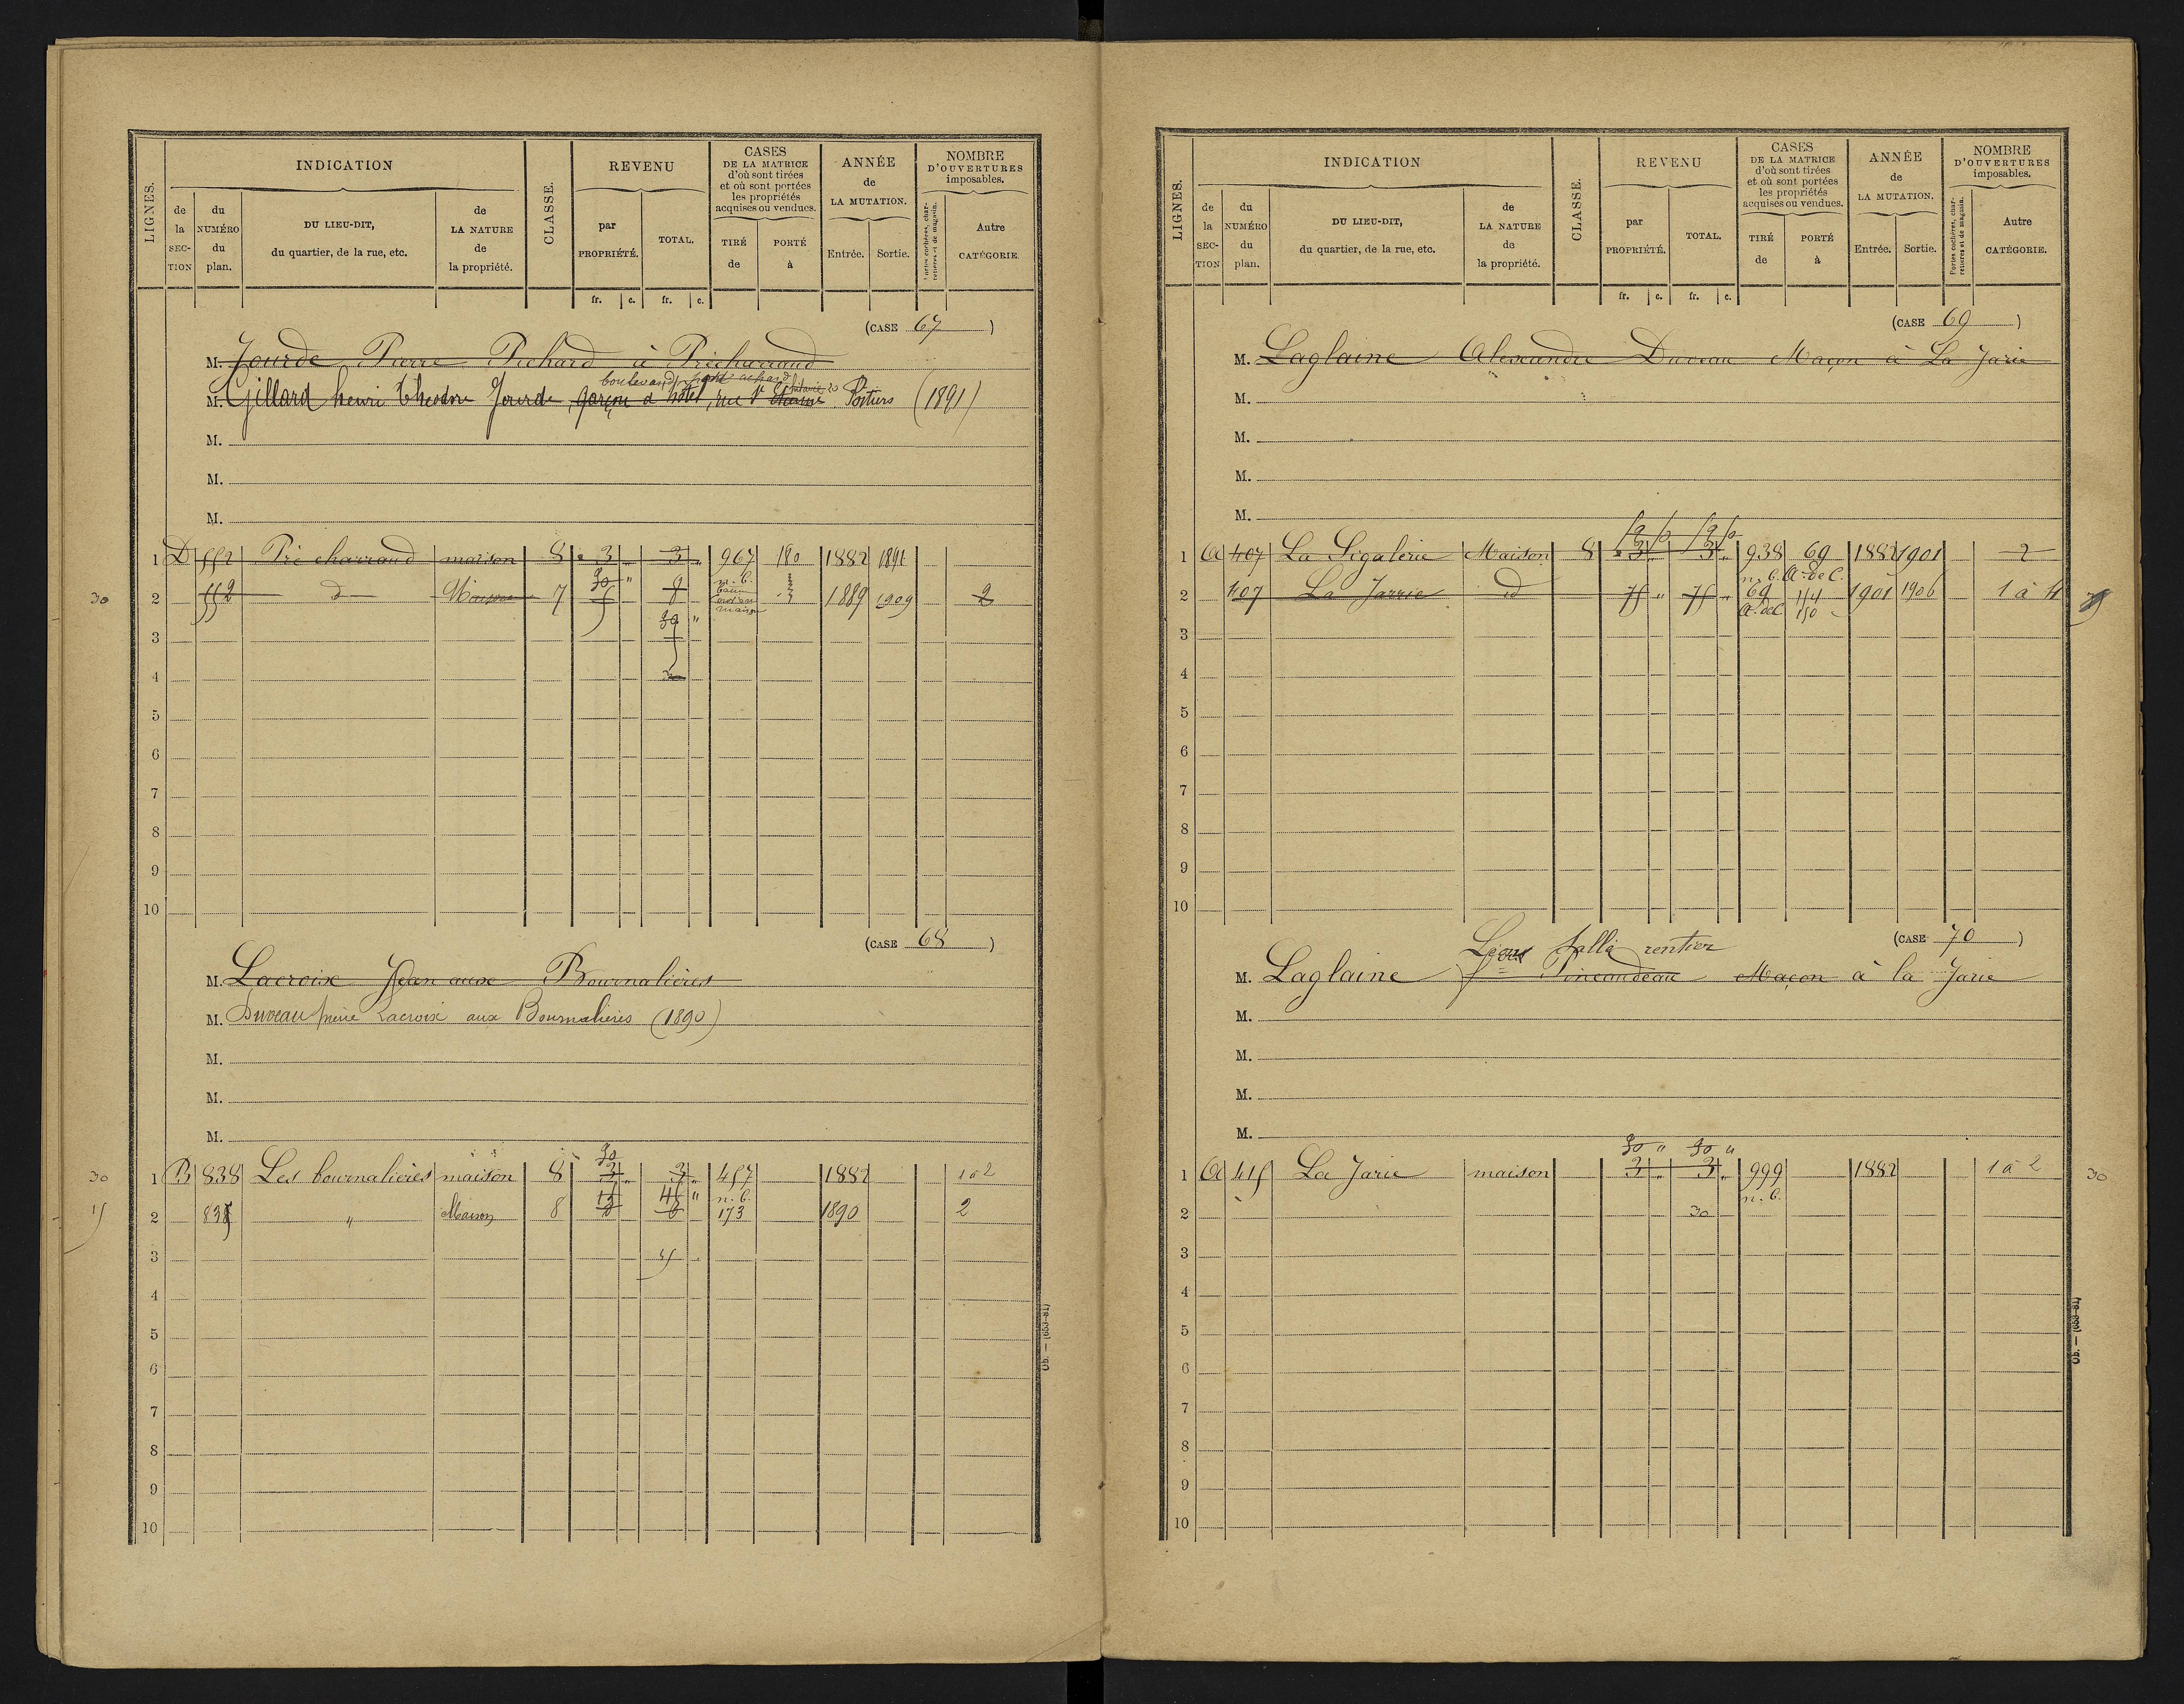 LIGNES.
INDICATION
de la SECTION
du NUMÉRO du plan.
DU LIEU-DIT, du quartier, de la rue, etc.
de LA NATURE de la propriété.
CLASSE.
REVENU
par PROPRIÉTÉ.
TOTAL.
fr. c. fr. c.
CASES DE LA MATRICE d'où sont tirées et où sont portées les propriétés acquises ou vendues.
TIRÉ de
PORTÉ à
ANNÉE de LA MUTATION.
Entrée. Sortie.
NOMBRE D'OUVERTURES imposables.
Portes cochères, charretières et de magasin.
Autre CATÉGORIE.
(CASE 67)
M. Jourde Pierre Pichard à Précharraud
boulevard pont achard
M. Gillard henri théodore Jourde, garçon d'hôtel, rue St Poitiers (1891)
M.
M.
M.
1 D 552 Pré charraud maison 8 3 " 3 " 967 180 1882 1891
30 "
n. b.
30 2 552 d Maison 7 1889 1909 2
maison
30 "
3
4
5
6
7
8
9
10
(CASE 68)
M. Lacroix Jean aux Bournalières
M. Duveau Lacroix aux Bournalières (1890)
M.
M.
M.
30
30 1 B 838 Les bournalières maison 8 3 " 3 " 457 1882 1 à 2
15 45 " n. b.
15 2 838 " Maison 8 173 1890 2
3 45
4
5
6
7
8
9
10
Ob. — (653-81)
LIGNES.
INDICATION
de la SECTION
du NUMÉRO du plan.
DU LIEU-DIT, du quartier, de la rue, etc.
de LA NATURE de la propriété.
CLASSE.
REVENU
par PROPRIÉTÉ.
TOTAL.
fr. c. fr. c.
CASES DE LA MATRICE d'où sont tirées et où sont portées les propriétés acquises ou vendues.
TIRÉ de
PORTÉ à
ANNÉE de LA MUTATION.
Entrée. Sortie.
NOMBRE D'OUVERTURES imposables.
Portes cochères, charretières et de magasin.
Autre CATÉGORIE.
(CASE 69)
M. Laglaine Alexandre Duveau Maçon à La Jarie
M.
M.
M.
M.
1 A 407 La Sigalerie Maison 8 3 " 3 " 938 69 1882 1901 2
n. b. A. de C.
2 407 La Jarrie d 75 " 75 " 69 154 1901 1906 1 à 4 75
A. de C. 150
3
4
5
6
7
8
9
10
(CASE 70)
rentier
M. Laglaine Maçon à la Jarie
M.
M.
M.
M.
30 " 30 "
1 A 415 La Jarie maison 3 " 3 " 999 1882 1 à 2 30
n. b.
2 30
3
4
5
6
7
8
9
10
Ob. — (653-81)